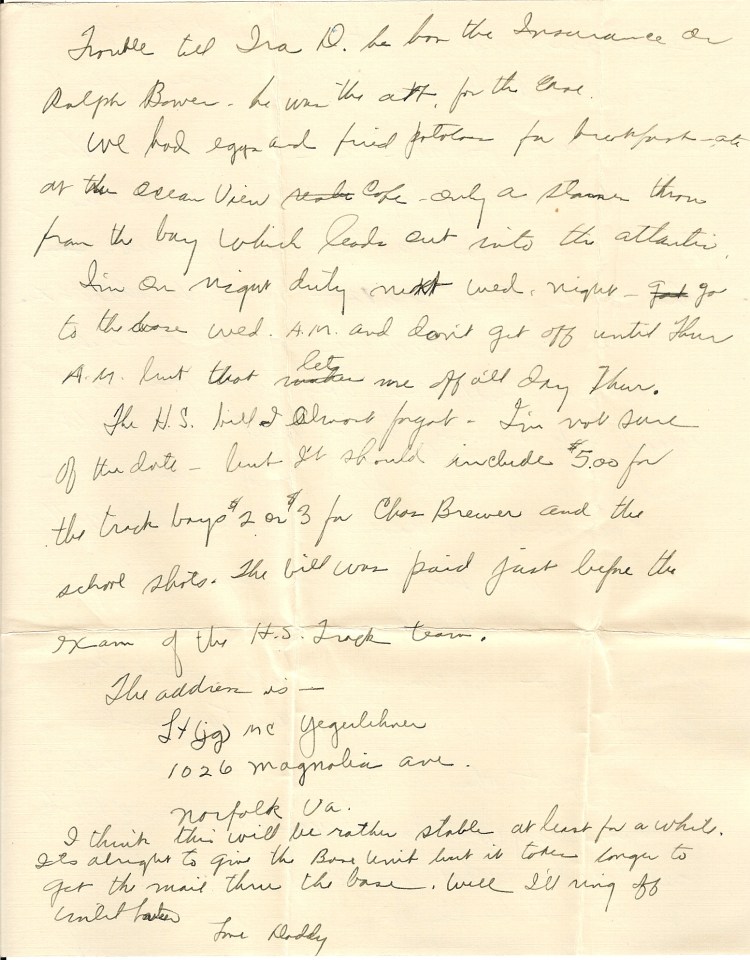 Trouble tell Ira D. he has the Insurance or
Ralph Bower - he was the att. for the Case.
We had eggs and fried potatoes for breakfast - ate
at the Ocean View Cafe - only a stones throw
from the bay which leads out into the atlantic.
I'm on night duty next wed. night - go
to the base wed. A.M. and don't get off until Thur
A.M. but that lets me off all day Thur.
The H.S. bill I almost forgot - I'm not sure
of the date - but it should include $5.00 for
the track boys $2 or $3 for Chas Brewer and the
school shots. The bill was paid just before the
exam of the H.S. Track team.
The address is -
Lt (jg) MC Yegerlehner
1026 Magnolia ave.
Norfolk Va.
I think this will be rather stable at least for a while.
It's alright to give the Base Unit but it takes longer to
get the mail thru the base. Well I'll ring off
until later
Love Daddy